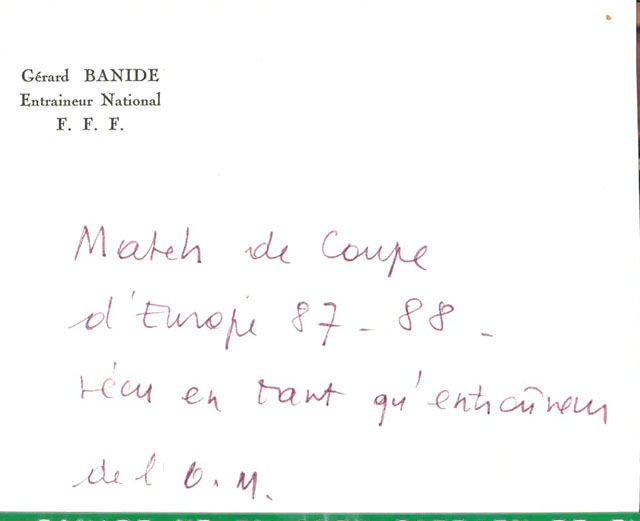 Gérard BANIDE
Entraineur National
F. F. F.
Match de Coupe
d'Europe 87 - 88 -
vécu en tant qu'entraîneur
de l'O.M.